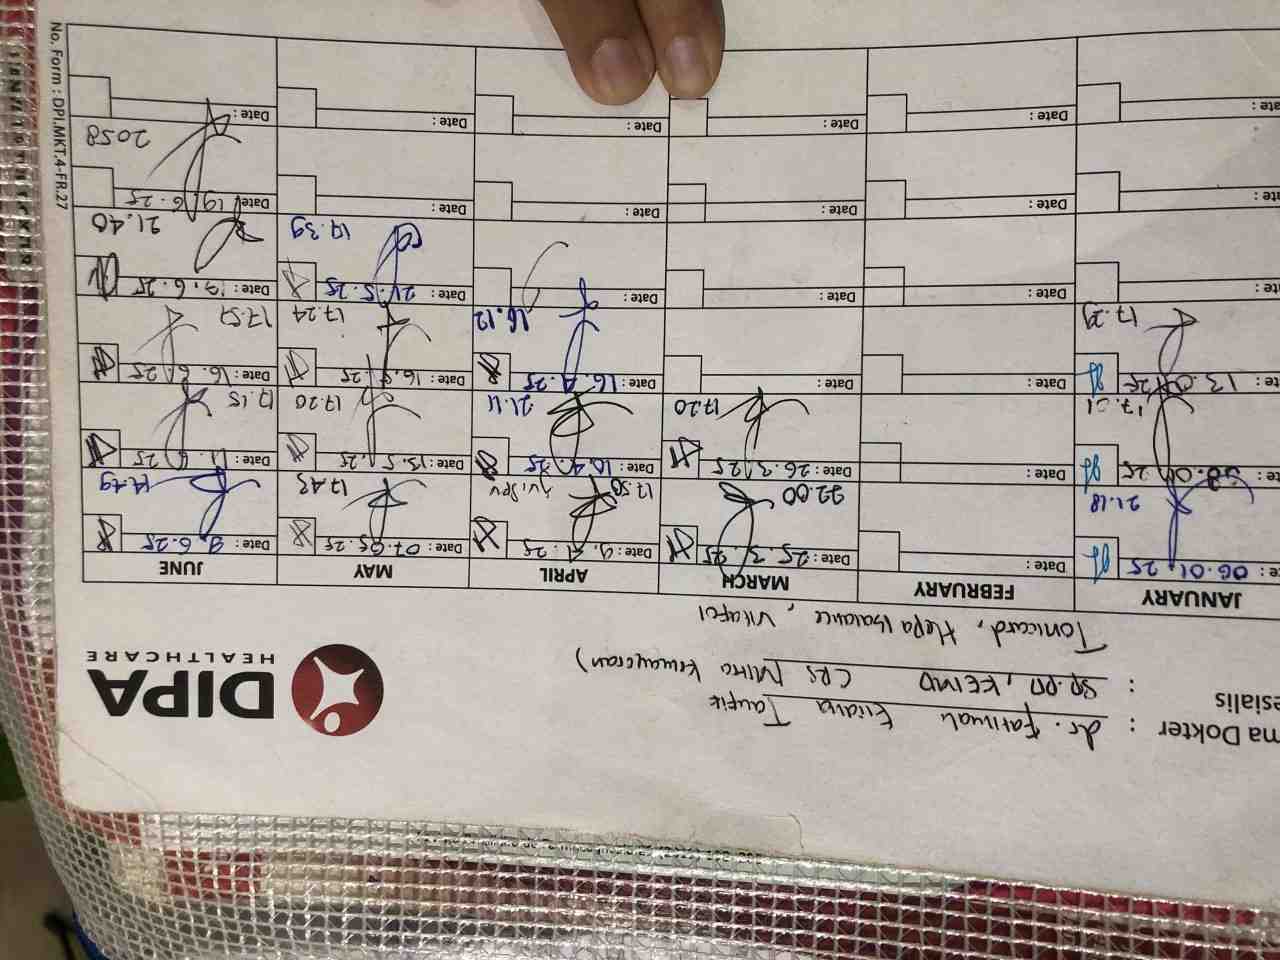 DIPA
HEALTHCARE
ma Dokter : dr. Fatimah Eliana Taufik
esialis : Sp.PD, KEMD CRS Mitra Kemayoran)
Tonicard, Hepa Balance, Vitafol
JANUARY FEBRUARY MARCH APRIL MAY JUNE
te: 06.01.25 Date: Date: 25.3.25 Date: 9.4.25 Date: 07.05.25 Date: 9.6.25
21.18 22.00 17.50 17.43 14.49
te: 08.01.25 Date: Date: 26.3.25 Date: 10.4.25 Date: 13.5.25 Date: 11.6.25
17.01 17.20 21.11 17.20 17.15
te: 13.01.25 Date: Date: Date: 16.4.25 Date: 16.5.25 Date: 16.6.25
17.29 16.12 17.24 17.51
te: Date: Date: Date: Date: 21.5.25 Date: 17.6.25
17.39 21.40
te: Date: Date: Date: Date: Date: 19.6.25
2058
te: Date: Date: Date: Date: Date:
No. Form : DPI.MKT.4-FR.27